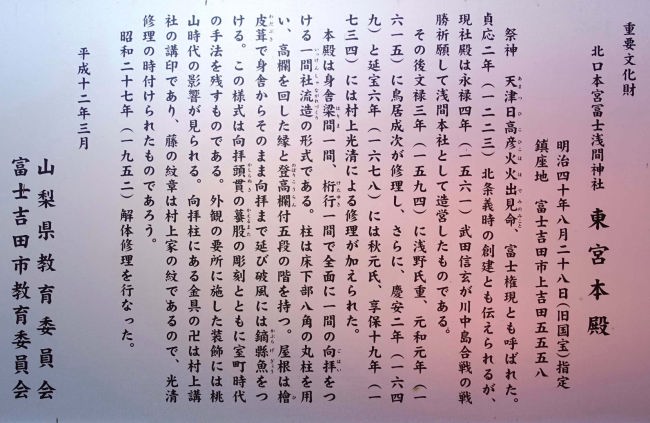 重要文化財
北口本宮冨士浅間神社　東宮本殿
明治四十年八月二十八日(旧国宝)指定
鎮座地　富士吉田市上吉田五五五八
祭神　天津日高彦火火出見命、富士権現とも呼ばれた。
貞応二年（一二二三）北条義時の創建とも伝えられるが、
現社殿は永禄四年（一五六一）武田信玄が川中島合戦の戦
勝祈願して浅間本社として造営したものである。
その後文禄三年（一五九四）に浅野氏重、元和元年（一
六一五）に鳥居成次が修理し、さらに、慶安二年（一六四
九）と延宝六年（一六七八）には秋元氏、享保十九年（一
七三四）には村上光清による修理が加えられた。
本殿は身舎梁間一間、桁行一間で全面に一間の向拝をつ
ける一間社流造の形式である。柱は床下部八角の丸柱を用
い、高欄を回した縁と登高欄付五段の階を持つ。屋根は檜
皮葺で身舎からそのまま向拝まで延び破風には鏑縣魚をつ
ける。この様式は向拝頭貫の蟇股の彫刻とともに室町時代
の手法を残すものである。外観の要所に施した装飾には桃
山時代の影響が見られる。向拝柱にある金具の卍は村上講
社の講印であり、藤の紋章は村上家の紋であるので、光清
修理の時付けられたものであろう。
昭和二十七年（一九五二）解体修理を行なった。
平成十二年三月
山梨県教育委員会
富士吉田市教育委員会